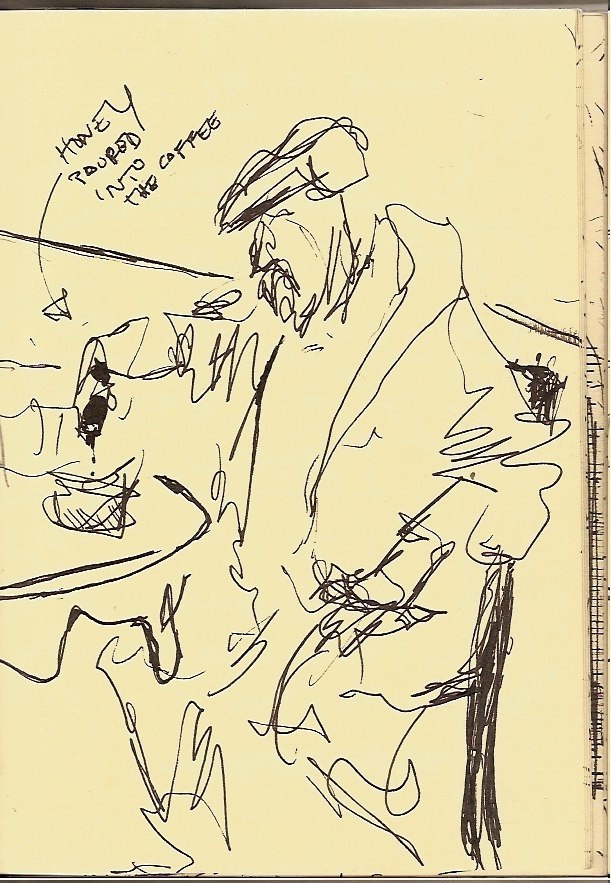 HONEY
POURED
INTO
THE COFFEE